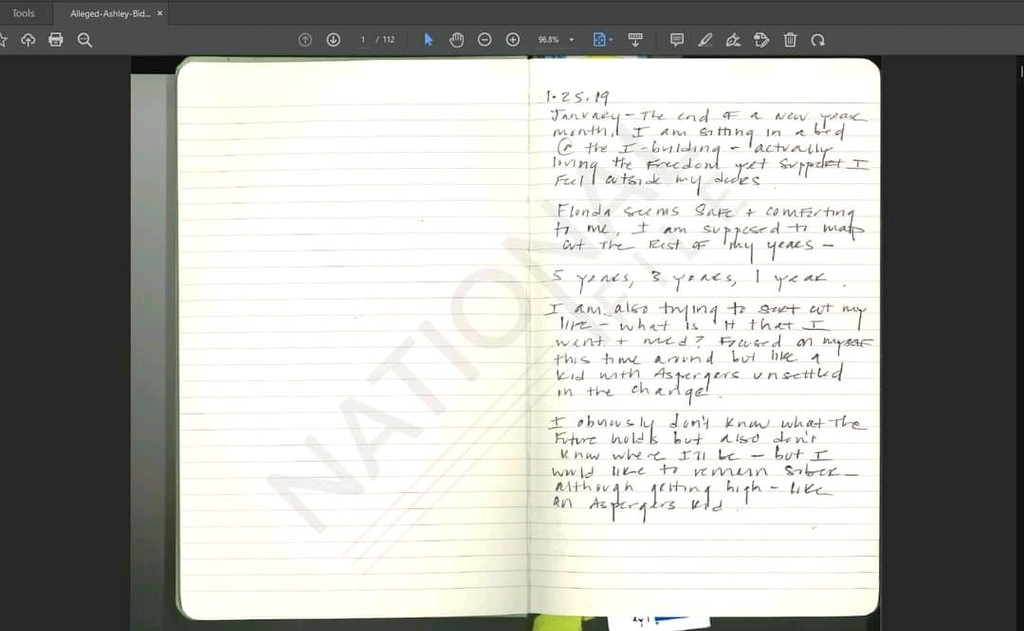 Tools
Alleged-Ashley-Bid...
1 / 112
96.8%
NATIONAL
FILE
1.25.19
January - The end of a new year
month. I am sitting in a bed
@ the I-building - actually
loving the Freedom yet support I
Feel outside my doors
Florida seems safe + comforting
to me, I am supposed to map
out the Rest of my years -
5 years, 3 years, 1 year
I am also trying to sort out my
life - what is it that I
want + need? Focused on myself
this time around but like a
kid with Aspergers unsettled
in the change.
I obviously don't know what the
Future holds but also don't
know where I'll be - but I
would like to remain sober -
although getting high - like
an Aspergers kid.